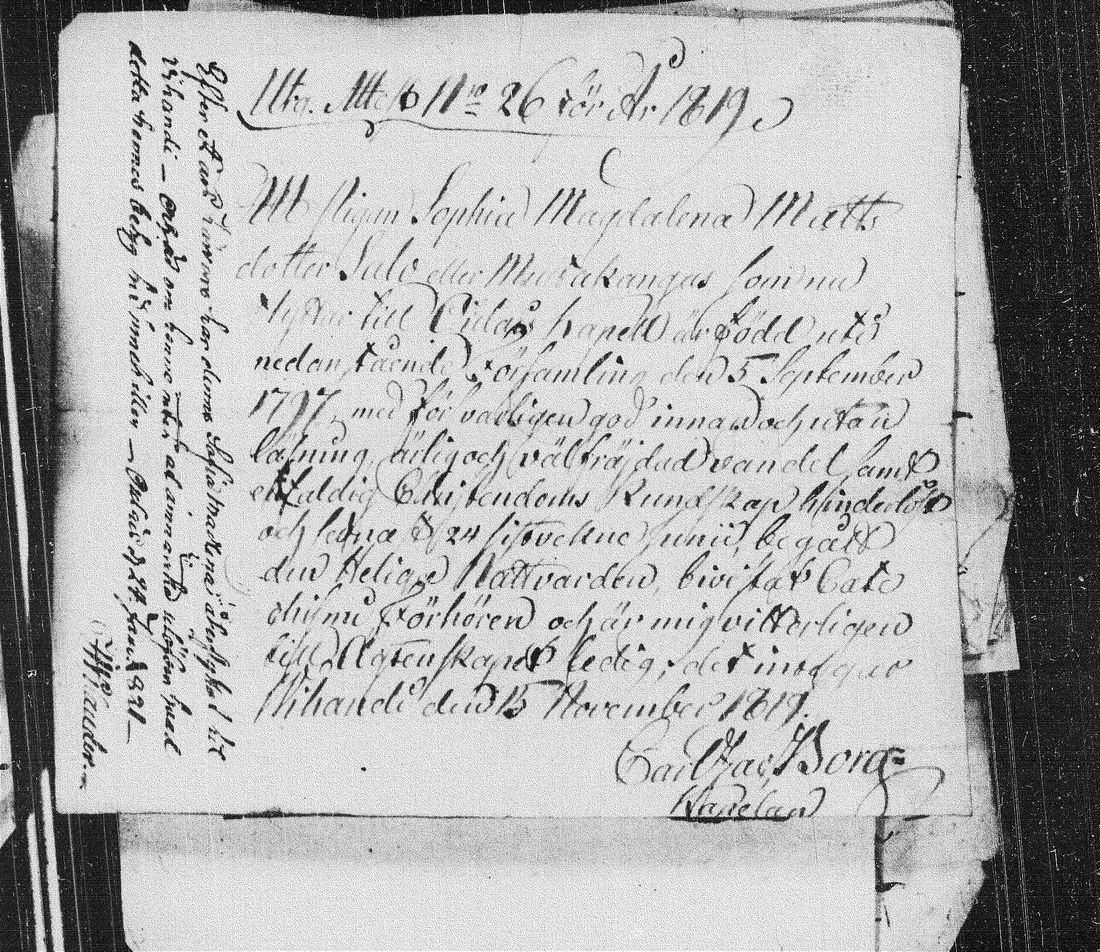 Utg. Attest No 26 för År 1819
Att Pigan Sophia Magdalena Matts
dotter Salo eller Mustakangas som nu
flyttar till kapell är född uti
nedanstående Församling den 5 September
1797, med förvarligen god innan och utan
läsning, ärlig och välfräjdad vandel samt
enfaldig Christendoms Kundskap, hinderlöst
och sedna d 24 sistvekne Junii, begått
den Heliga Nattvarden, bivistat Cate
chismi Förhören och är mig vitterligen
till Ägtenskapet ledig; det intygar
Vihandi den 15 November 1819.
Carl Jac. Borg
Kapelan
Efter ett års har denna Sofia återflyttat til
Vihandi – om henne
detta hennes betyg innehåller – d. 24 Juni 1821 –